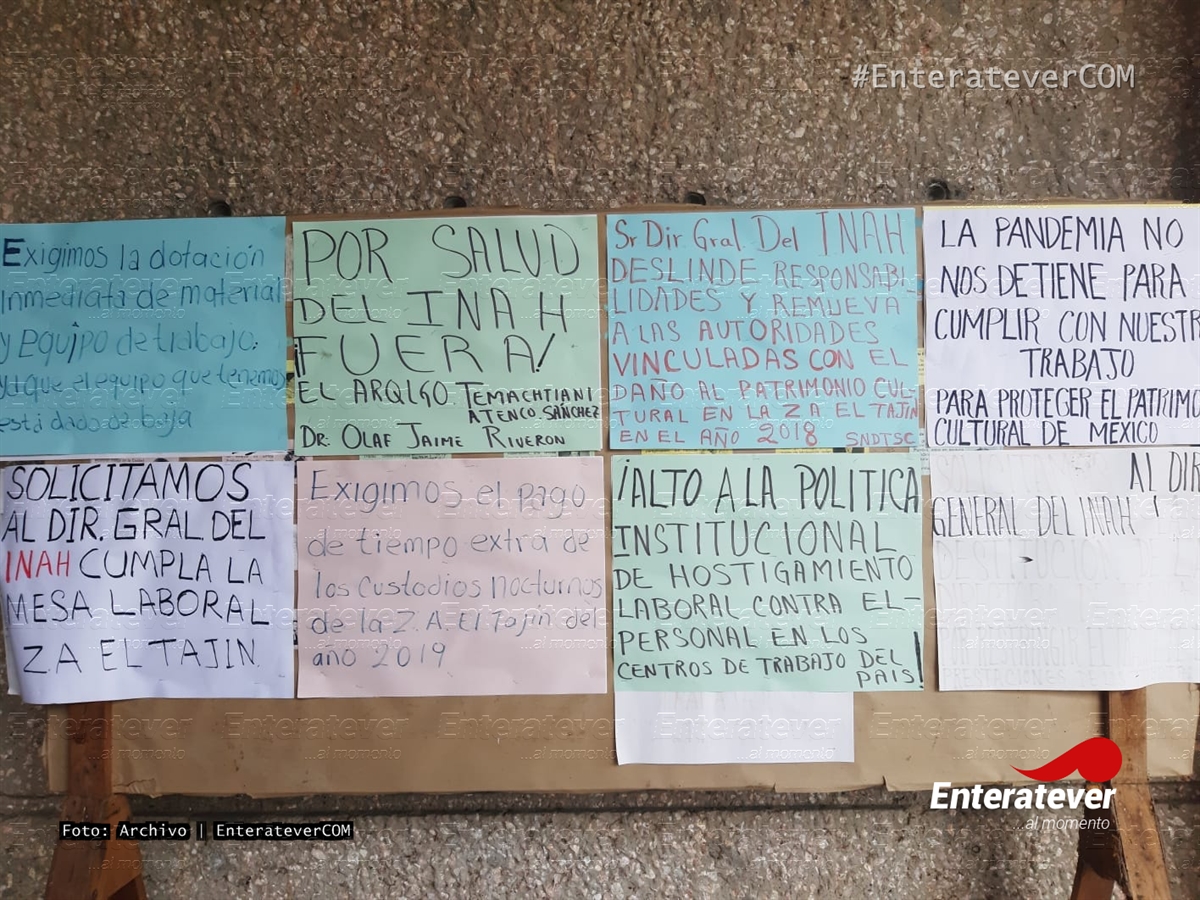 #EnterateverCOM
Exigimos la dotación
inmediata de material
y equipo de trabajo,
ya que el equipo que tenemos
está dado de baja
POR SALUD
DEL INAH
¡FUERA!
EL ARQLGO TEMACHTIANI
ATENCO SÁNCHEZ
DR. OLAF JAIME RIVERON
Sr Dir Gral. Del INAH
DESLINDE RESPONSABI-
LIDADES Y REMUEVA
A LAS AUTORIDADES
VINCULADAS CON EL
DAÑO AL PATRIMONIO CUL-
TURAL EN LA ZA EL TAJIN
EN EL AÑO 2018 SNDTSC
LA PANDEMIA NO
NOS DETIENE PARA
CUMPLIR CON NUESTR
TRABAJO
PARA PROTEGER EL PATRIMO
CULTURAL DE MÉXICO
SOLICITAMOS
AL DIR. GRAL DEL
INAH CUMPLA LA
MESA LABORAL
Z.A EL TAJIN.
Exigimos el pago
de tiempo extra de
los custodios nocturnos
de la Z.A-El Tajin del
año 2019
¡ALTO A LA POLITICA
INSTITUCIONAL
DE HOSTIGAMIENTO
LABORAL CONTRA EL-
PERSONAL EN LOS
CENTROS DE TRABAJO DEL
PAIS!
AL DIR
GENERAL DEL INAH
Enteratever
...al momento
Foto: Archivo | EnterateverCOM